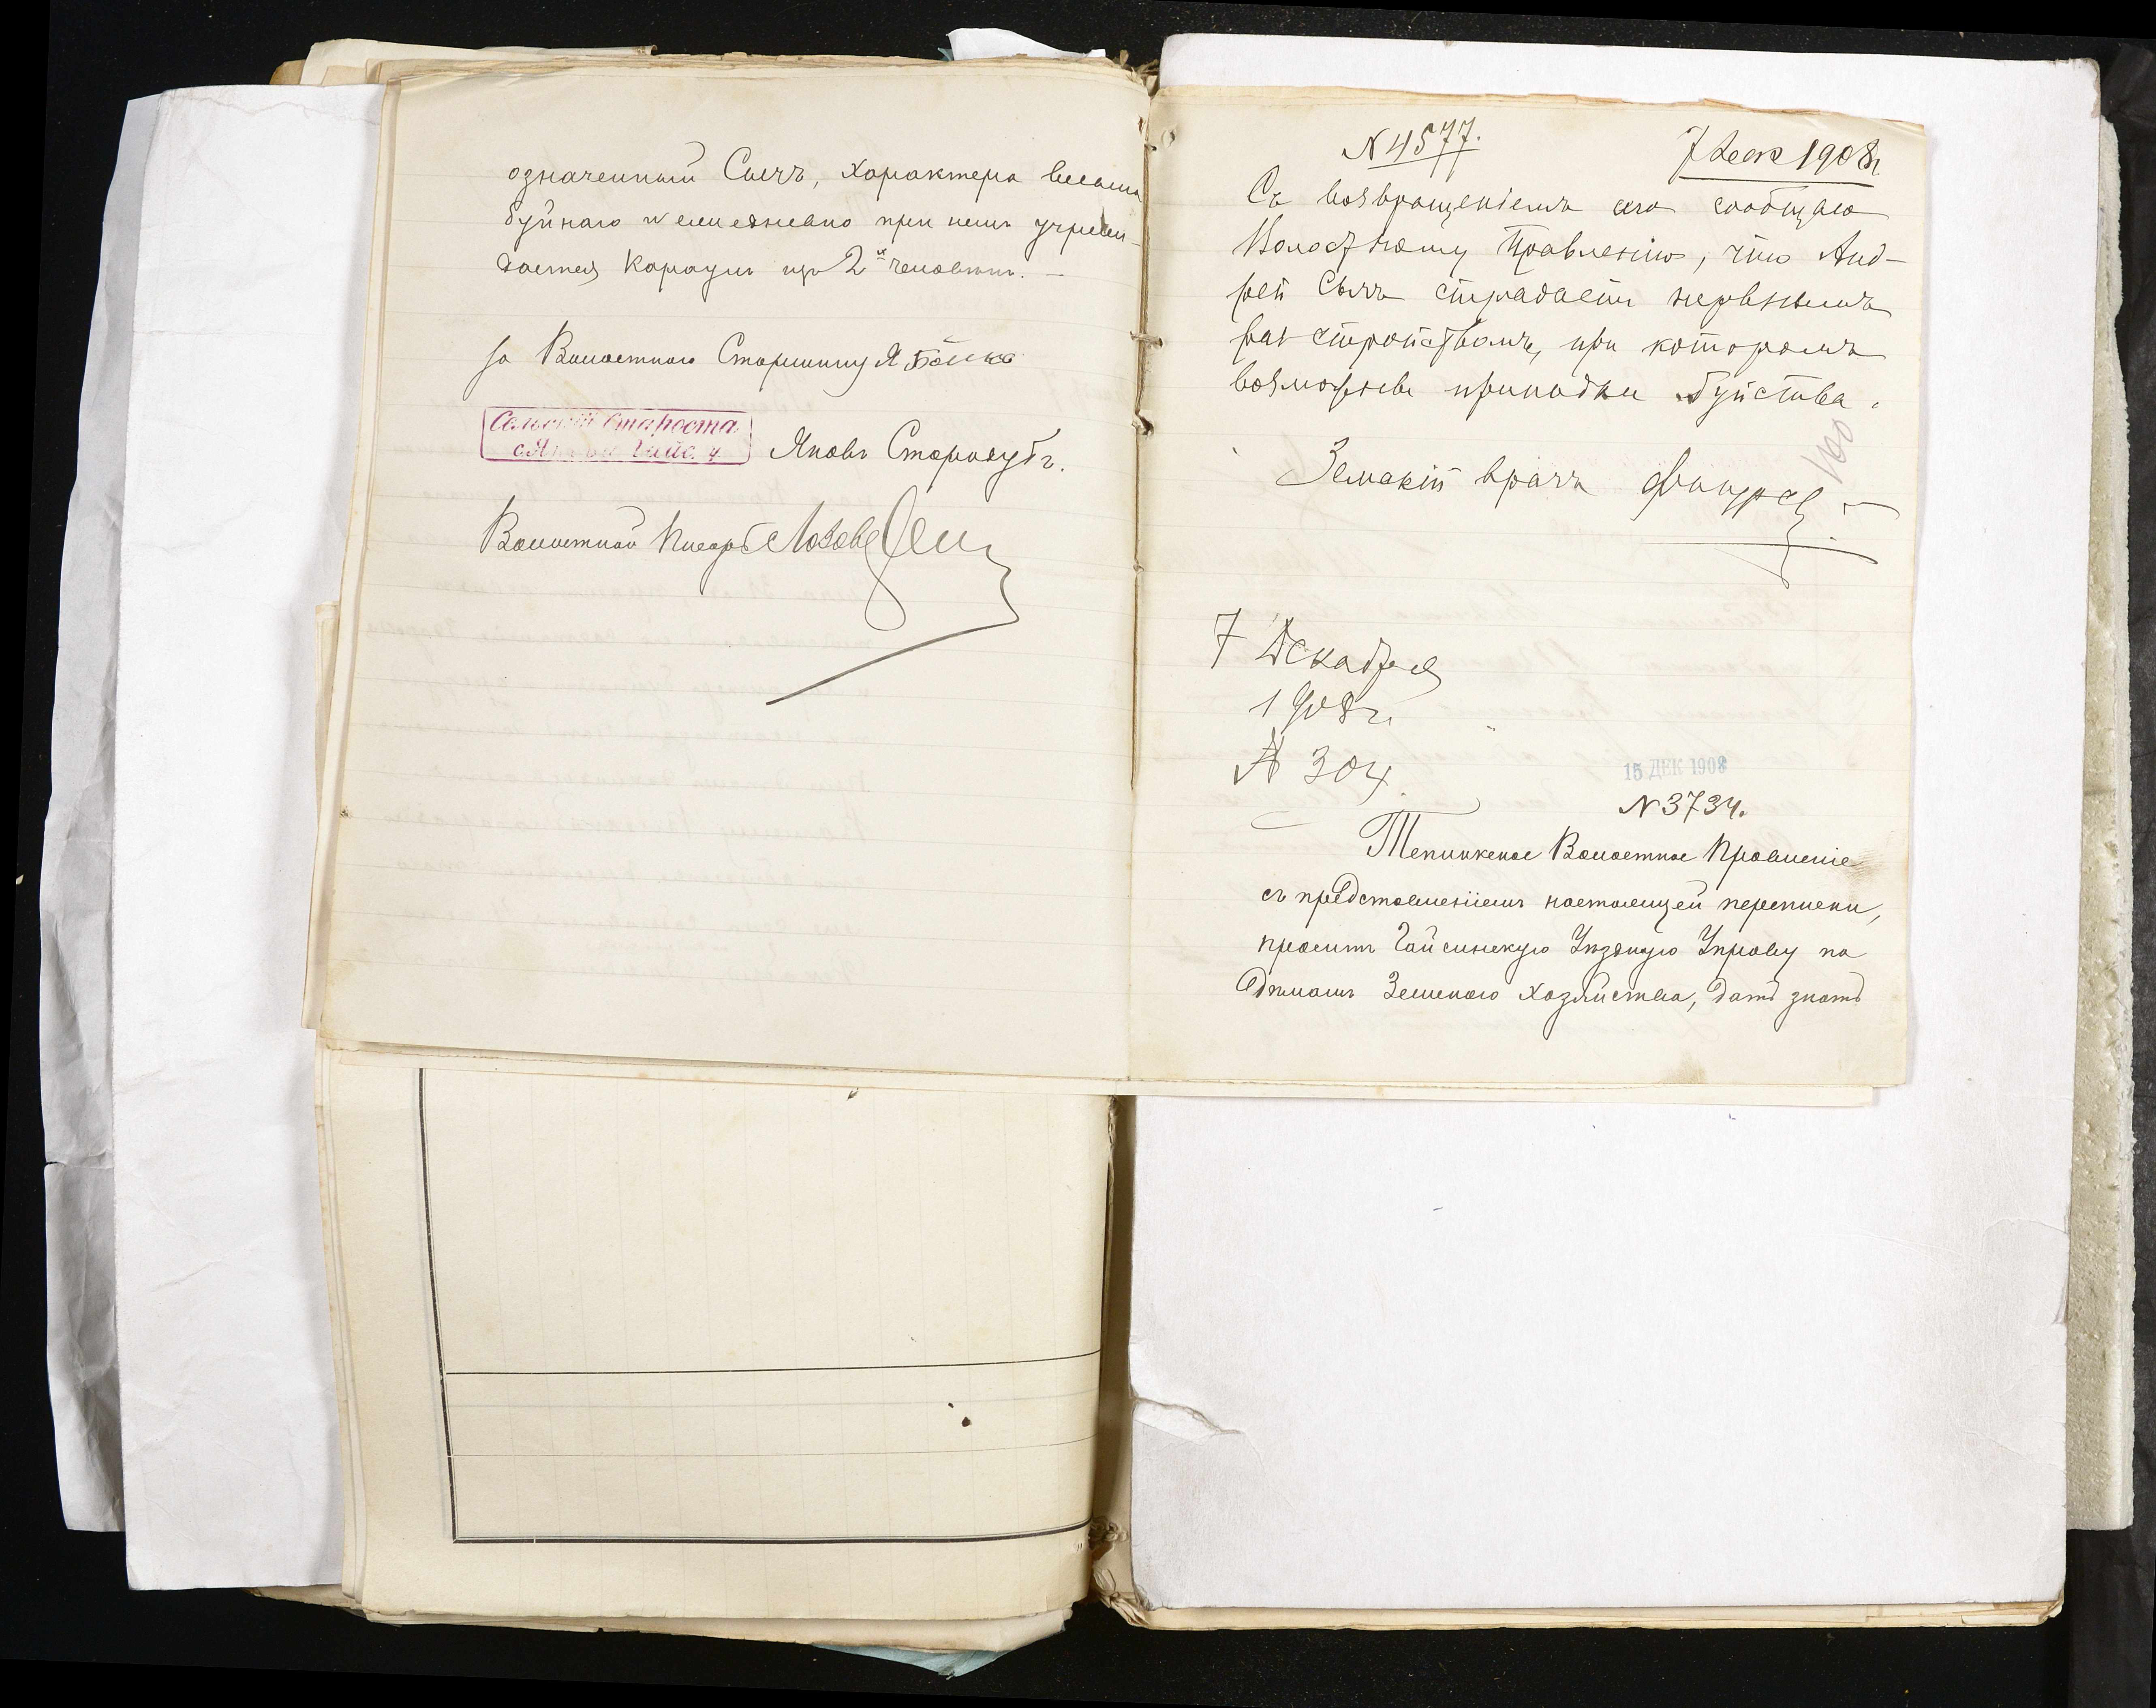 означенный Сычъ, характера весьма
буйнаго и ежедневно при немъ учреж-
дается караулъ изъ 2х человѣкъ. —
За Волостного Старшину Я Бойко
Сельскій Староста
Яковъ Старозубъ.
Волостной Писарь
N 4577.
7 Дек 1908 г.
Съ возвращеніемъ сего сообщаю
Волостному Правленію, что Анд-
рей Сычъ страдаетъ нервнымъ
разстройствомъ, при которомъ
возможны припадки буйства.
Земскій врачъ
7 Декабря
1908 г.
№ 304.
15 ДЕК 1908
N 3734.
Тепликское Волостное Правленіе
съ представленіемъ настоящей переписки,
проситъ Гайсинскую Уѣздную Управу по
дѣламъ Земскаго хозяйства, дать знать